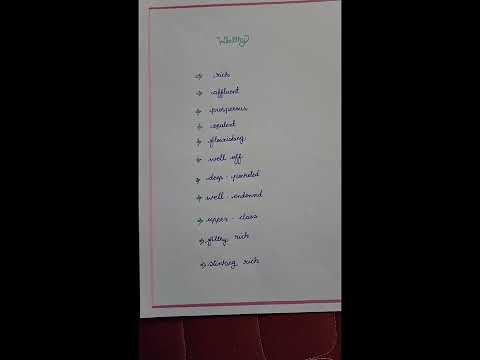 Wealthy
→ rich
→ affluent
→ prosperous
→ opulent
→ flourishing
→ well off
→ deep - pocketed
→ well - endowed
→ upper - class
→ filthy rich
→ stinking rich